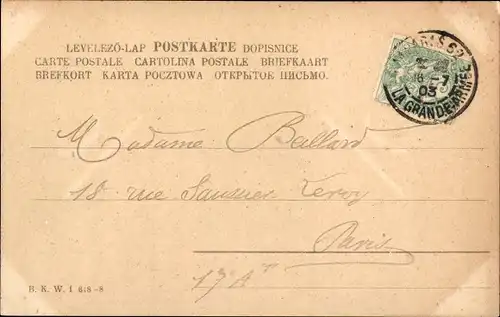 LEVELEZŐ-LAP POSTKARTE DOPISNICE
CARTE POSTALE CARTOLINA POSTALE BRIEFKAART
BREFKORT KARTA POCZTOWA ОТКРЫТОЕ ПИСЬМО.
PARIS
8 -7
03
LA GRANDE-ARMÉE
Madame Baillard
18 rue Saussier Leroy
Paris
17 Aᵗ
B. K. W. I. 618-8